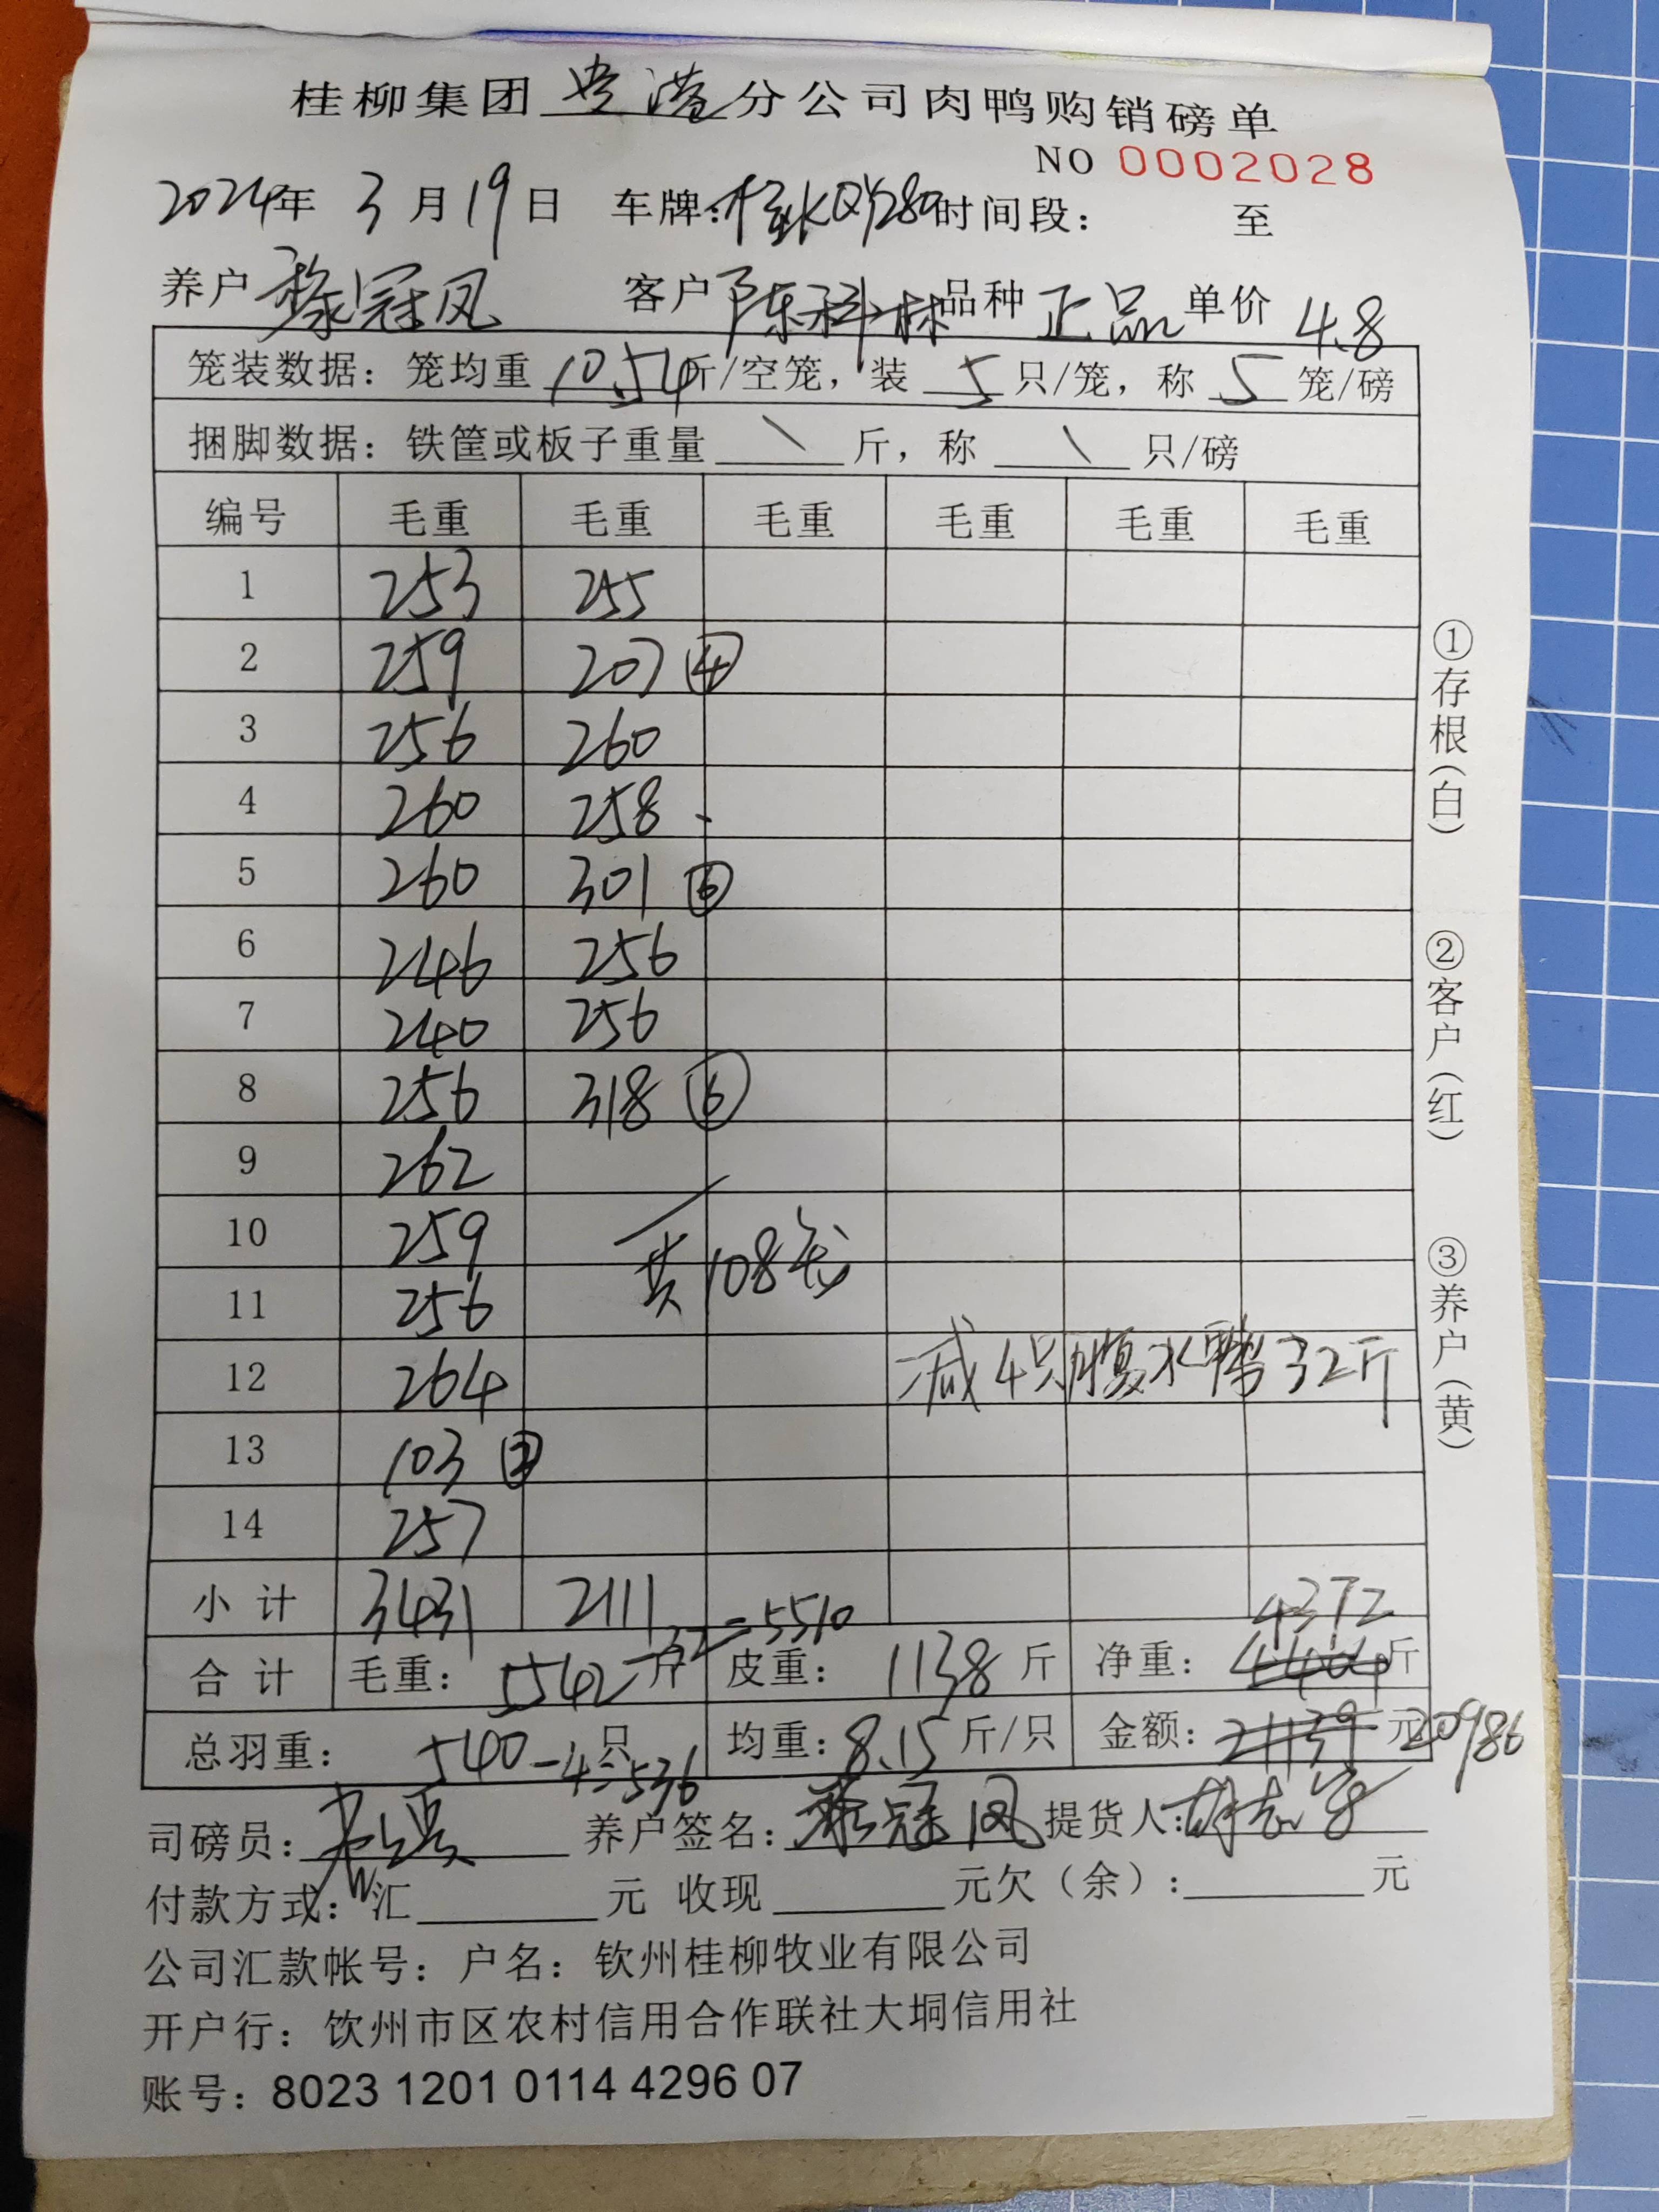 桂柳集团贵港分公司肉鸭购销磅单
NO 0002028
2024年 3月19日 车牌: 时间段: 至
养户 黎冠凤 客户 陈科林 品种 正品 单价 4.8
笼装数据：笼均重 10.54 斤/空笼，装 5 只/笼，称 5 笼/磅
捆脚数据：铁筐或板子重量 \ 斤，称 \ 只/磅
编号 毛重 毛重 毛重 毛重 毛重 毛重
1 253 255
2 259 207 ④
3 256 260
4 260 258
5 260 301 ⑥
6 246 256
7 240 256
8 256 318 ⑥
9 262
10 259
11 256
共108笼
12 264
减4只腹水鸭32斤
13 103 ②
14 257
小计 3431 2111 4372
合计 毛重：5542斤-32=5510 皮重：1138斤 净重：4404斤
总羽重：540只-4=536 均重：8.15斤/只 金额：21139元 20986
司磅员： 养户签名：黎冠凤 提货人：
付款方式：汇 元 收现 元欠（余）：元
公司汇款帐号：户名：钦州桂柳牧业有限公司
开户行：饮州市区农村信用合作联社大垌信用社
账号：8023 1201 0114 4296 07
①存根（白）
②客户（红）
③养户（黄）